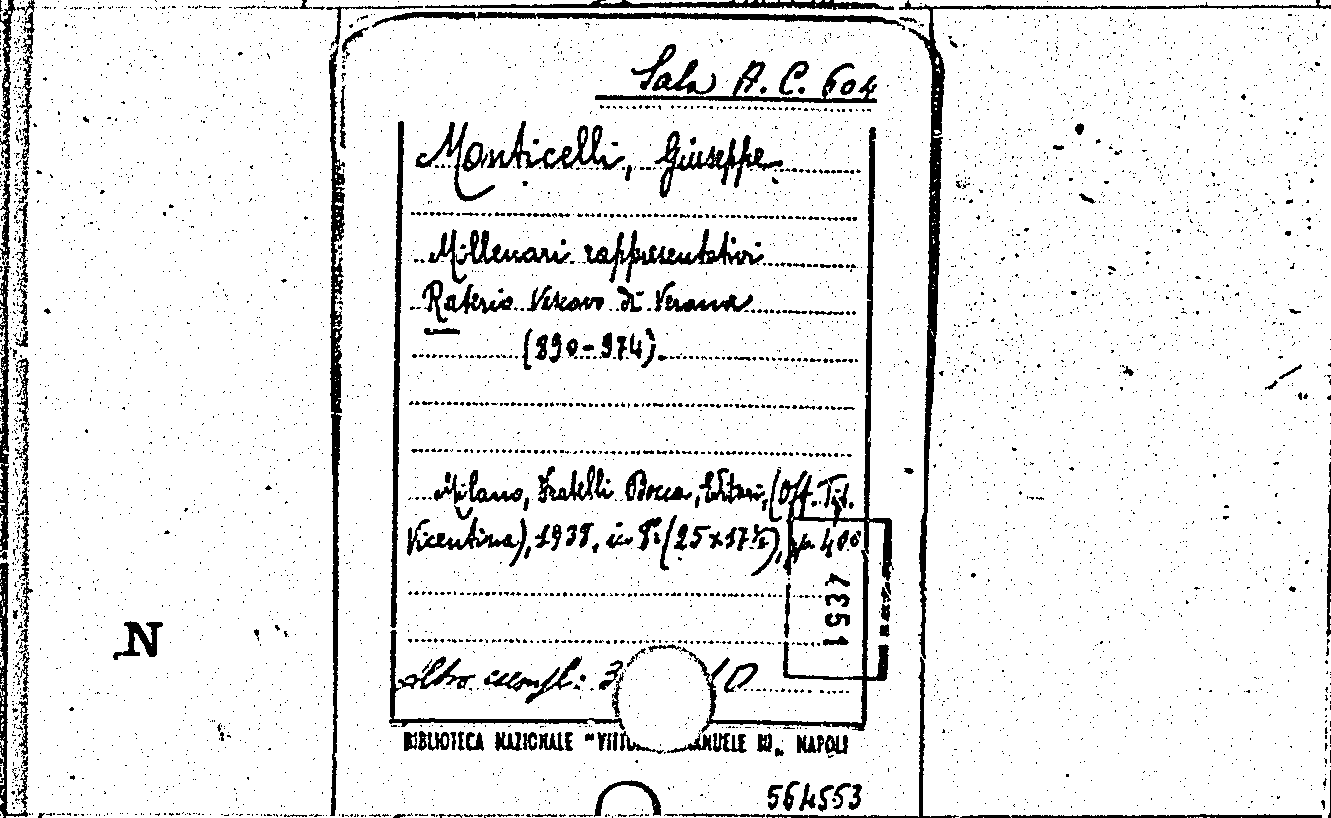 Sala A. C. 604
Monticelli, Giuseppe
Millenari rappresentativi
Raterio Vescovo di Verona
(890-974).
Milano, Fratelli Bocca, Editori, (Off. Tip.
Vicentina), 1938, in 8º (25x17½), pp. 400
4351
N
altro esempl: 3 /D
BIBLIOTECA NAZIONALE "VITTO ANUELE III„ NAPOLI
564553